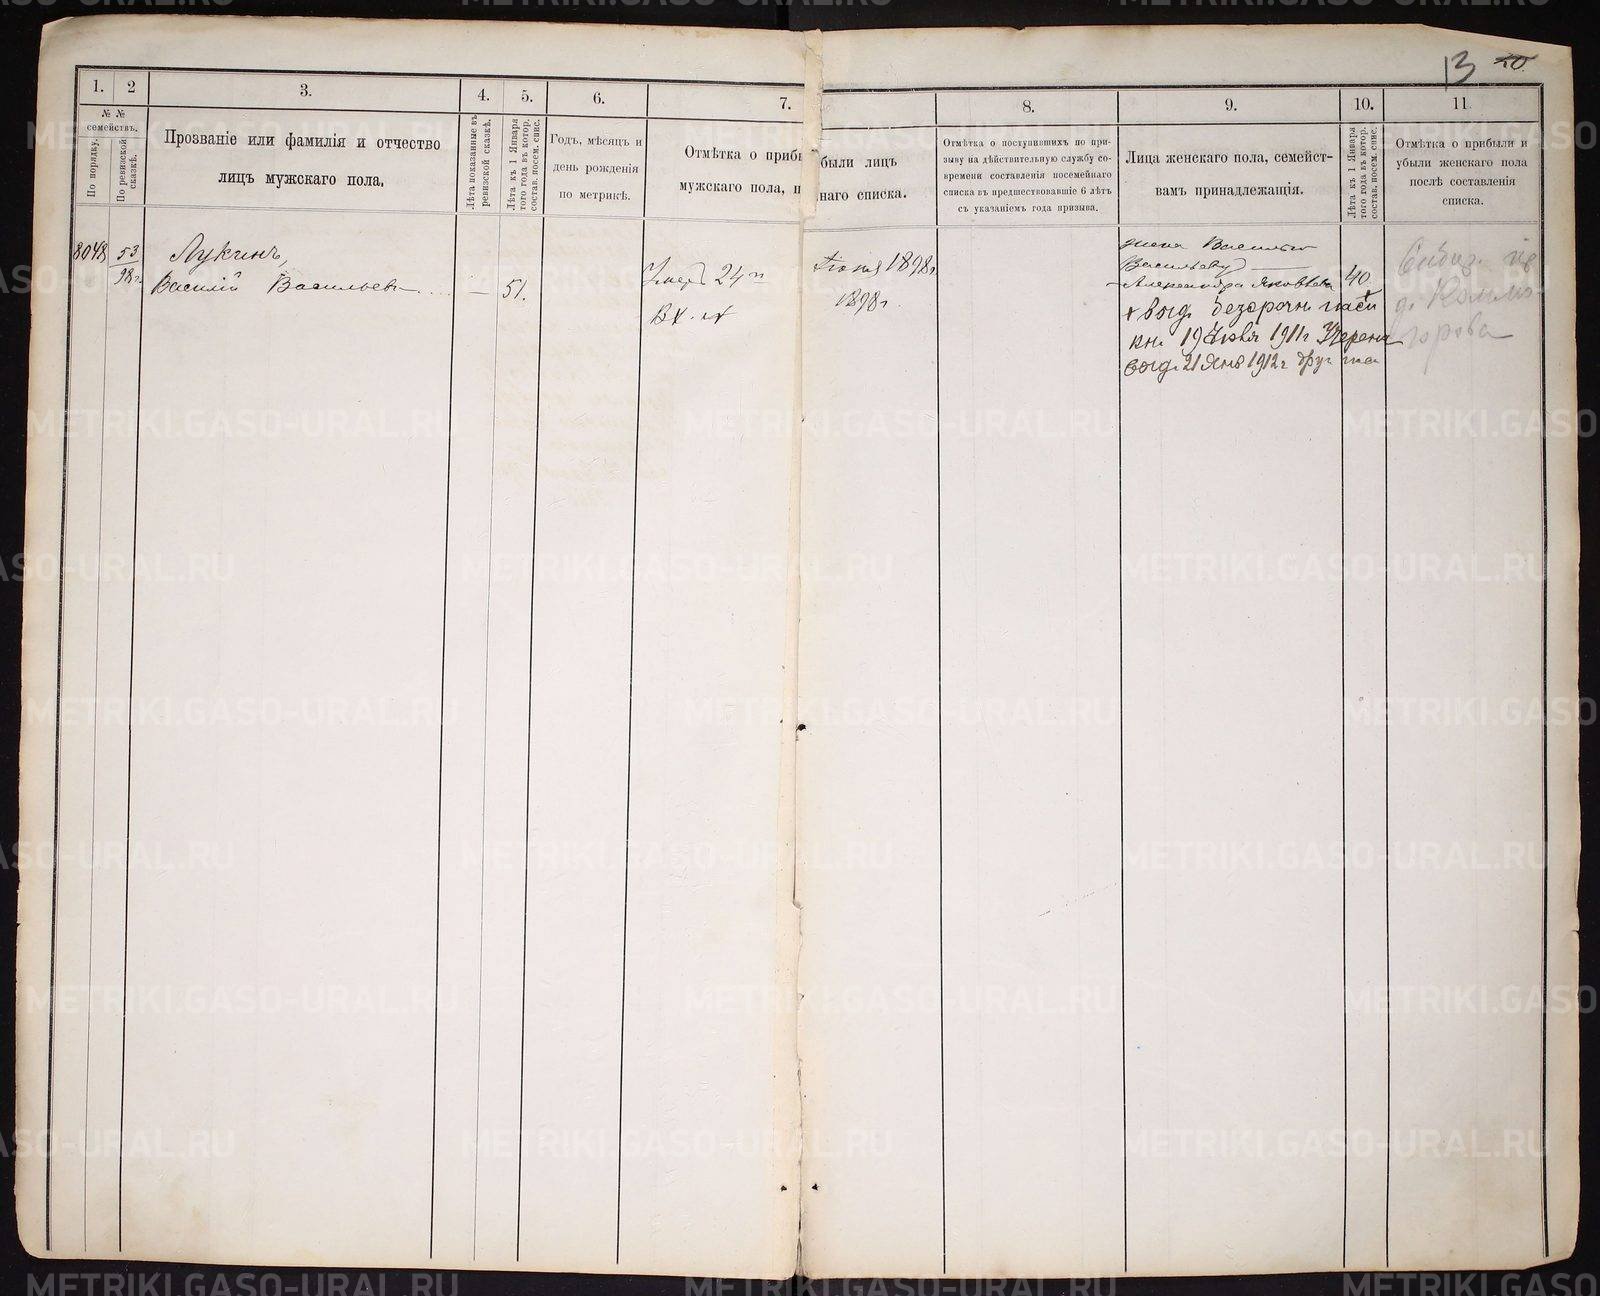 13 10
1.
2
3.
4.
5.
6.
7.
8.
9.
10.
11.
№ №
семействъ.
По порядку.
По ревизской
сказкѣ.
Прозваніе или фамилія и отчество
лицъ мужскаго пола.
Лѣта показанныя въ
ревизской сказкѣ.
Лѣта къ 1 Января
того года въ котор.
состав. посем. спис.
Годъ, мѣсяцъ и
день рожденія
по метрикѣ.
Отмѣтка о приб были лицъ
мужскаго пола, п наго списка.
Отмѣтка о поступившихъ по при-
зыву на дѣйствительную службу со-
времени составленія посемейнаго
списка въ предшествовавшіе 6 лѣтъ
съ указаніемъ года призыва.
Лица женскаго пола, семейст-
вамъ принадлежащія.
Лѣта къ 1 Января
того года въ котор.
состав. посем. спис.
Отмѣтка о прибыли и
убыли женскаго пола
послѣ составленія
списка.
8048
53
98 г.
Лукинъ,
Василій Васильевъ
51.
Умеръ 24 Іюня 1898 г.
1898 г.
жена Василья
Васильева
Александра Яковлева 40
выд. безсрочн
кн. 19 1911 г
выд. 21 Янв 1912 г
METRIKI.GASO-URAL.RU